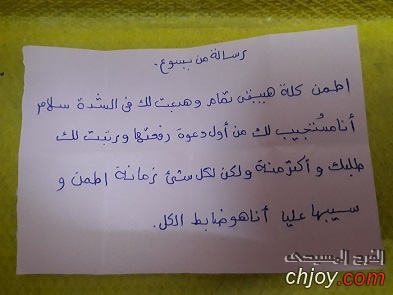 رسالة من يسوع.
اطمن كلة هيبقى تمام وهبعت لك فى الشدة سلام
أنا مستجيب لك من أول دعوة رفعتها ورتبت لك
طلبك و أكتر منة ولكن لكل شئ زمانة اطمن و
سيبها عليا أنا هو ضابط الكل.
الفرح المسيحى
chjoy.com